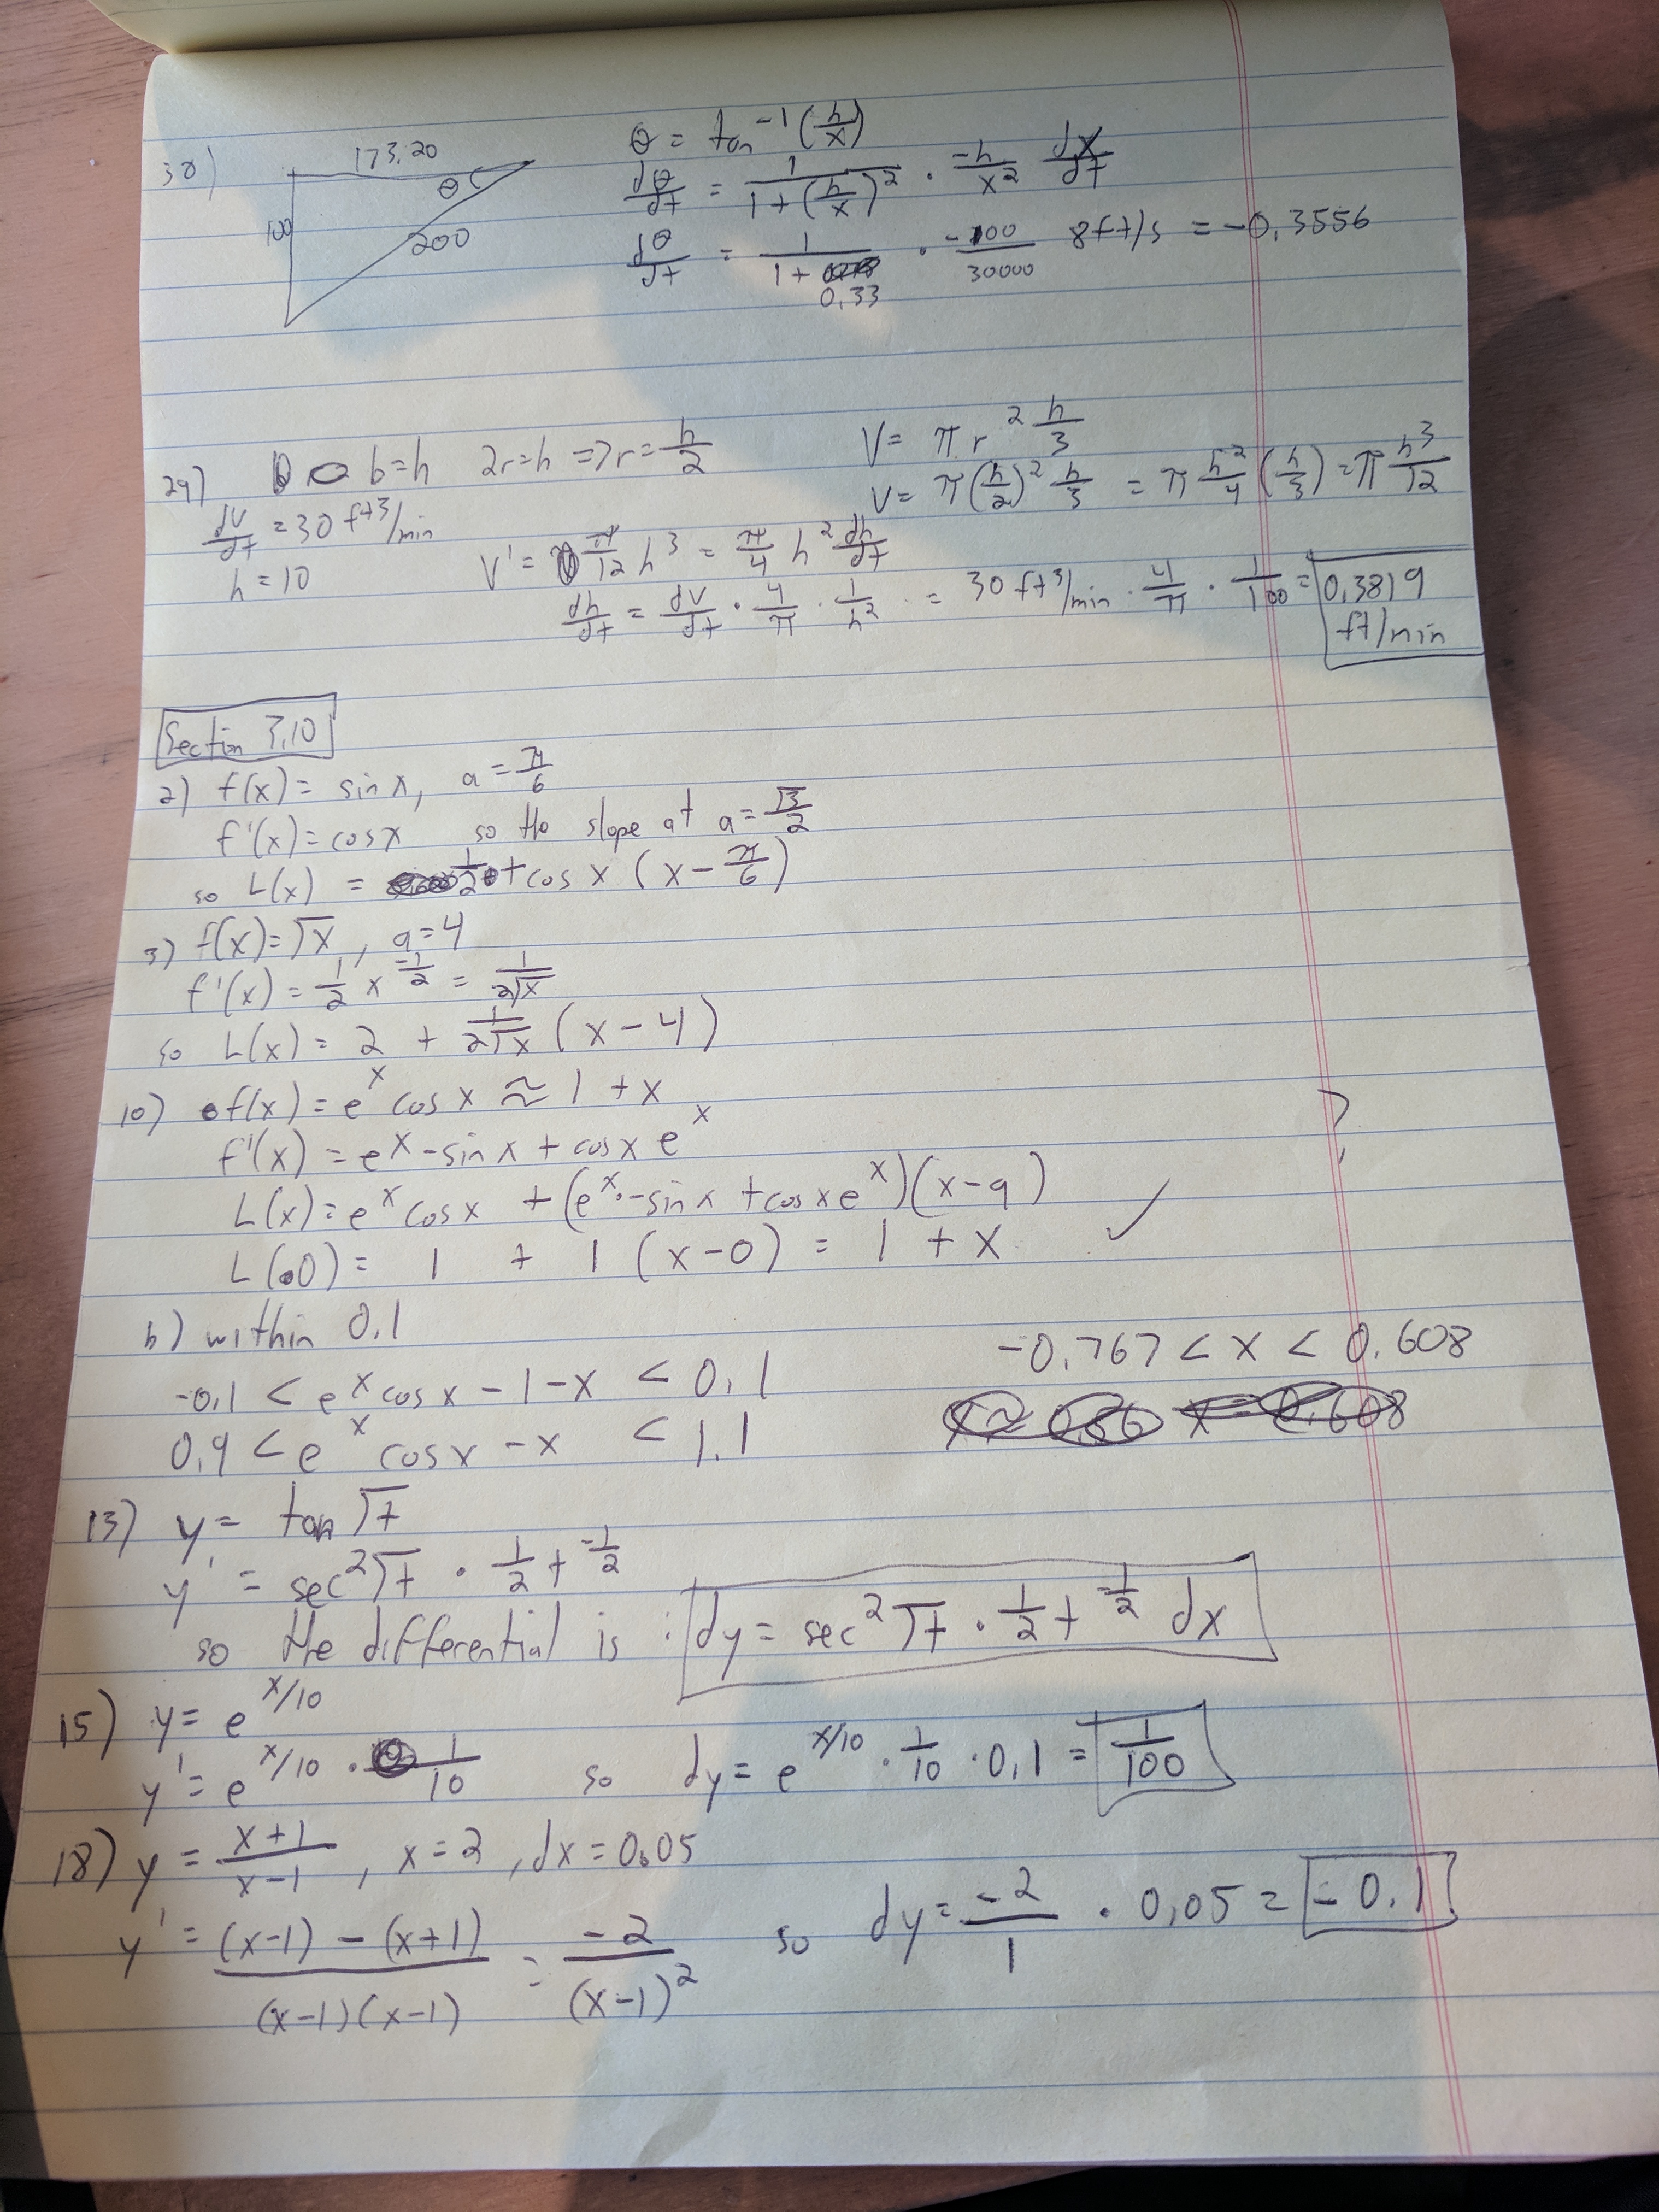 30) 173.20 θ 100 200
θ = tan⁻¹(h/x)
dθ/dt = 1/(1+(h/x)²) · -h/x² dx/dt
dθ/dt = 1/(1+0.33) · -100/30000 8ft/s = -0.3556
29) b=h 2r=h => r=h/2
dV/dt = 30 ft3/min
h = 10
V = π r² h/3
V = π(h/2)² h/3 = π h²/4 (h/3) = π h³/12
V' = π/12 h³ = π/4 h² dh/dt
dh/dt = dV/dt · 4/π · 1/h² = 30 ft³/min · 4/π · 1/100 = 0.3819 ft/min
Section 3.10
2) f(x) = sin x, a = π/6
f'(x) = cos x so the slope at a = √3/2
so L(x) = 1/2 + cos x (x - π/6)
3) f(x) = √x, a = 4
f'(x) = 1/2 x^(-1/2) = 1/(2√x)
so L(x) = 2 + 1/(2√x) (x - 4)
10) f(x) = e^x cos x ≈ 1 + x
f'(x) = e^x - sin x + cos x e^x
L(x) = e^x cos x + (e^x · - sin x + cos x e^x)(x - a)
L(0) = 1 + 1 (x - 0) = 1 + x ✓
b) within 0.1
-0.1 < e^x cos x - 1 - x < 0.1
0.9 < e^x cos x - x < 1.1
-0.767 < x < 0.608
13) y = tan √t
y' = sec² √t · 1/2 t^(-1/2)
so the differential is : dy = sec² √t · 1/2 t^(-1/2) dx
15) y = e^(x/10)
y' = e^(x/10) · 1/10 so dy = e^(x/10) · 1/10 · 0.1 = 1/100
18) y = (x+1)/(x-1), x = 2, dx = 0.05
y' = ((x-1) - (x+1))/((x-1)(x-1)) = -2/(x-1)² so dy = -2/1 · 0.05 = -0.1